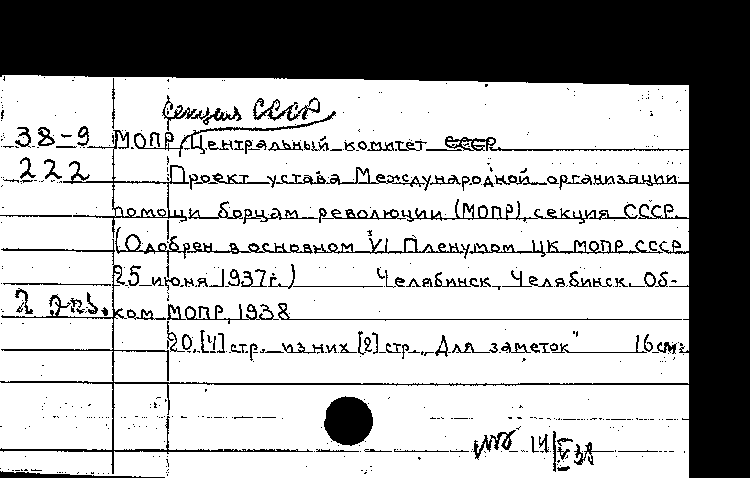 секция СССР
38-9 МОПР, Центральный комитет СССР.
222 Проект устава Международной организации
помощи борцам революции (МОПР), секция СССР.
(Одобрен в основном VI Пленумом ЦК МОПР СССР
25 июня 1937г.) Челябинск, Челябинск. Об-
2 экз. ком МОПР, 1938
20, [4] стр. из них [2] стр. „Для заметок" 16 см.
14/V 38